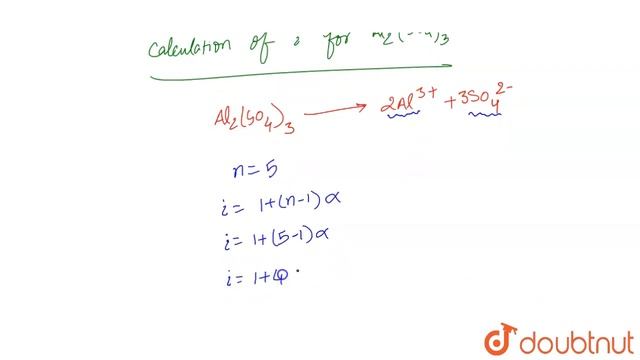 Calculation of i for Al2(SO4)3
Al2(SO4)3 → 2Al3+ + 3SO4 2-
n = 5
i = 1+(n-1)α
i = 1+(5-1)α
i = 1+4
doubtnut